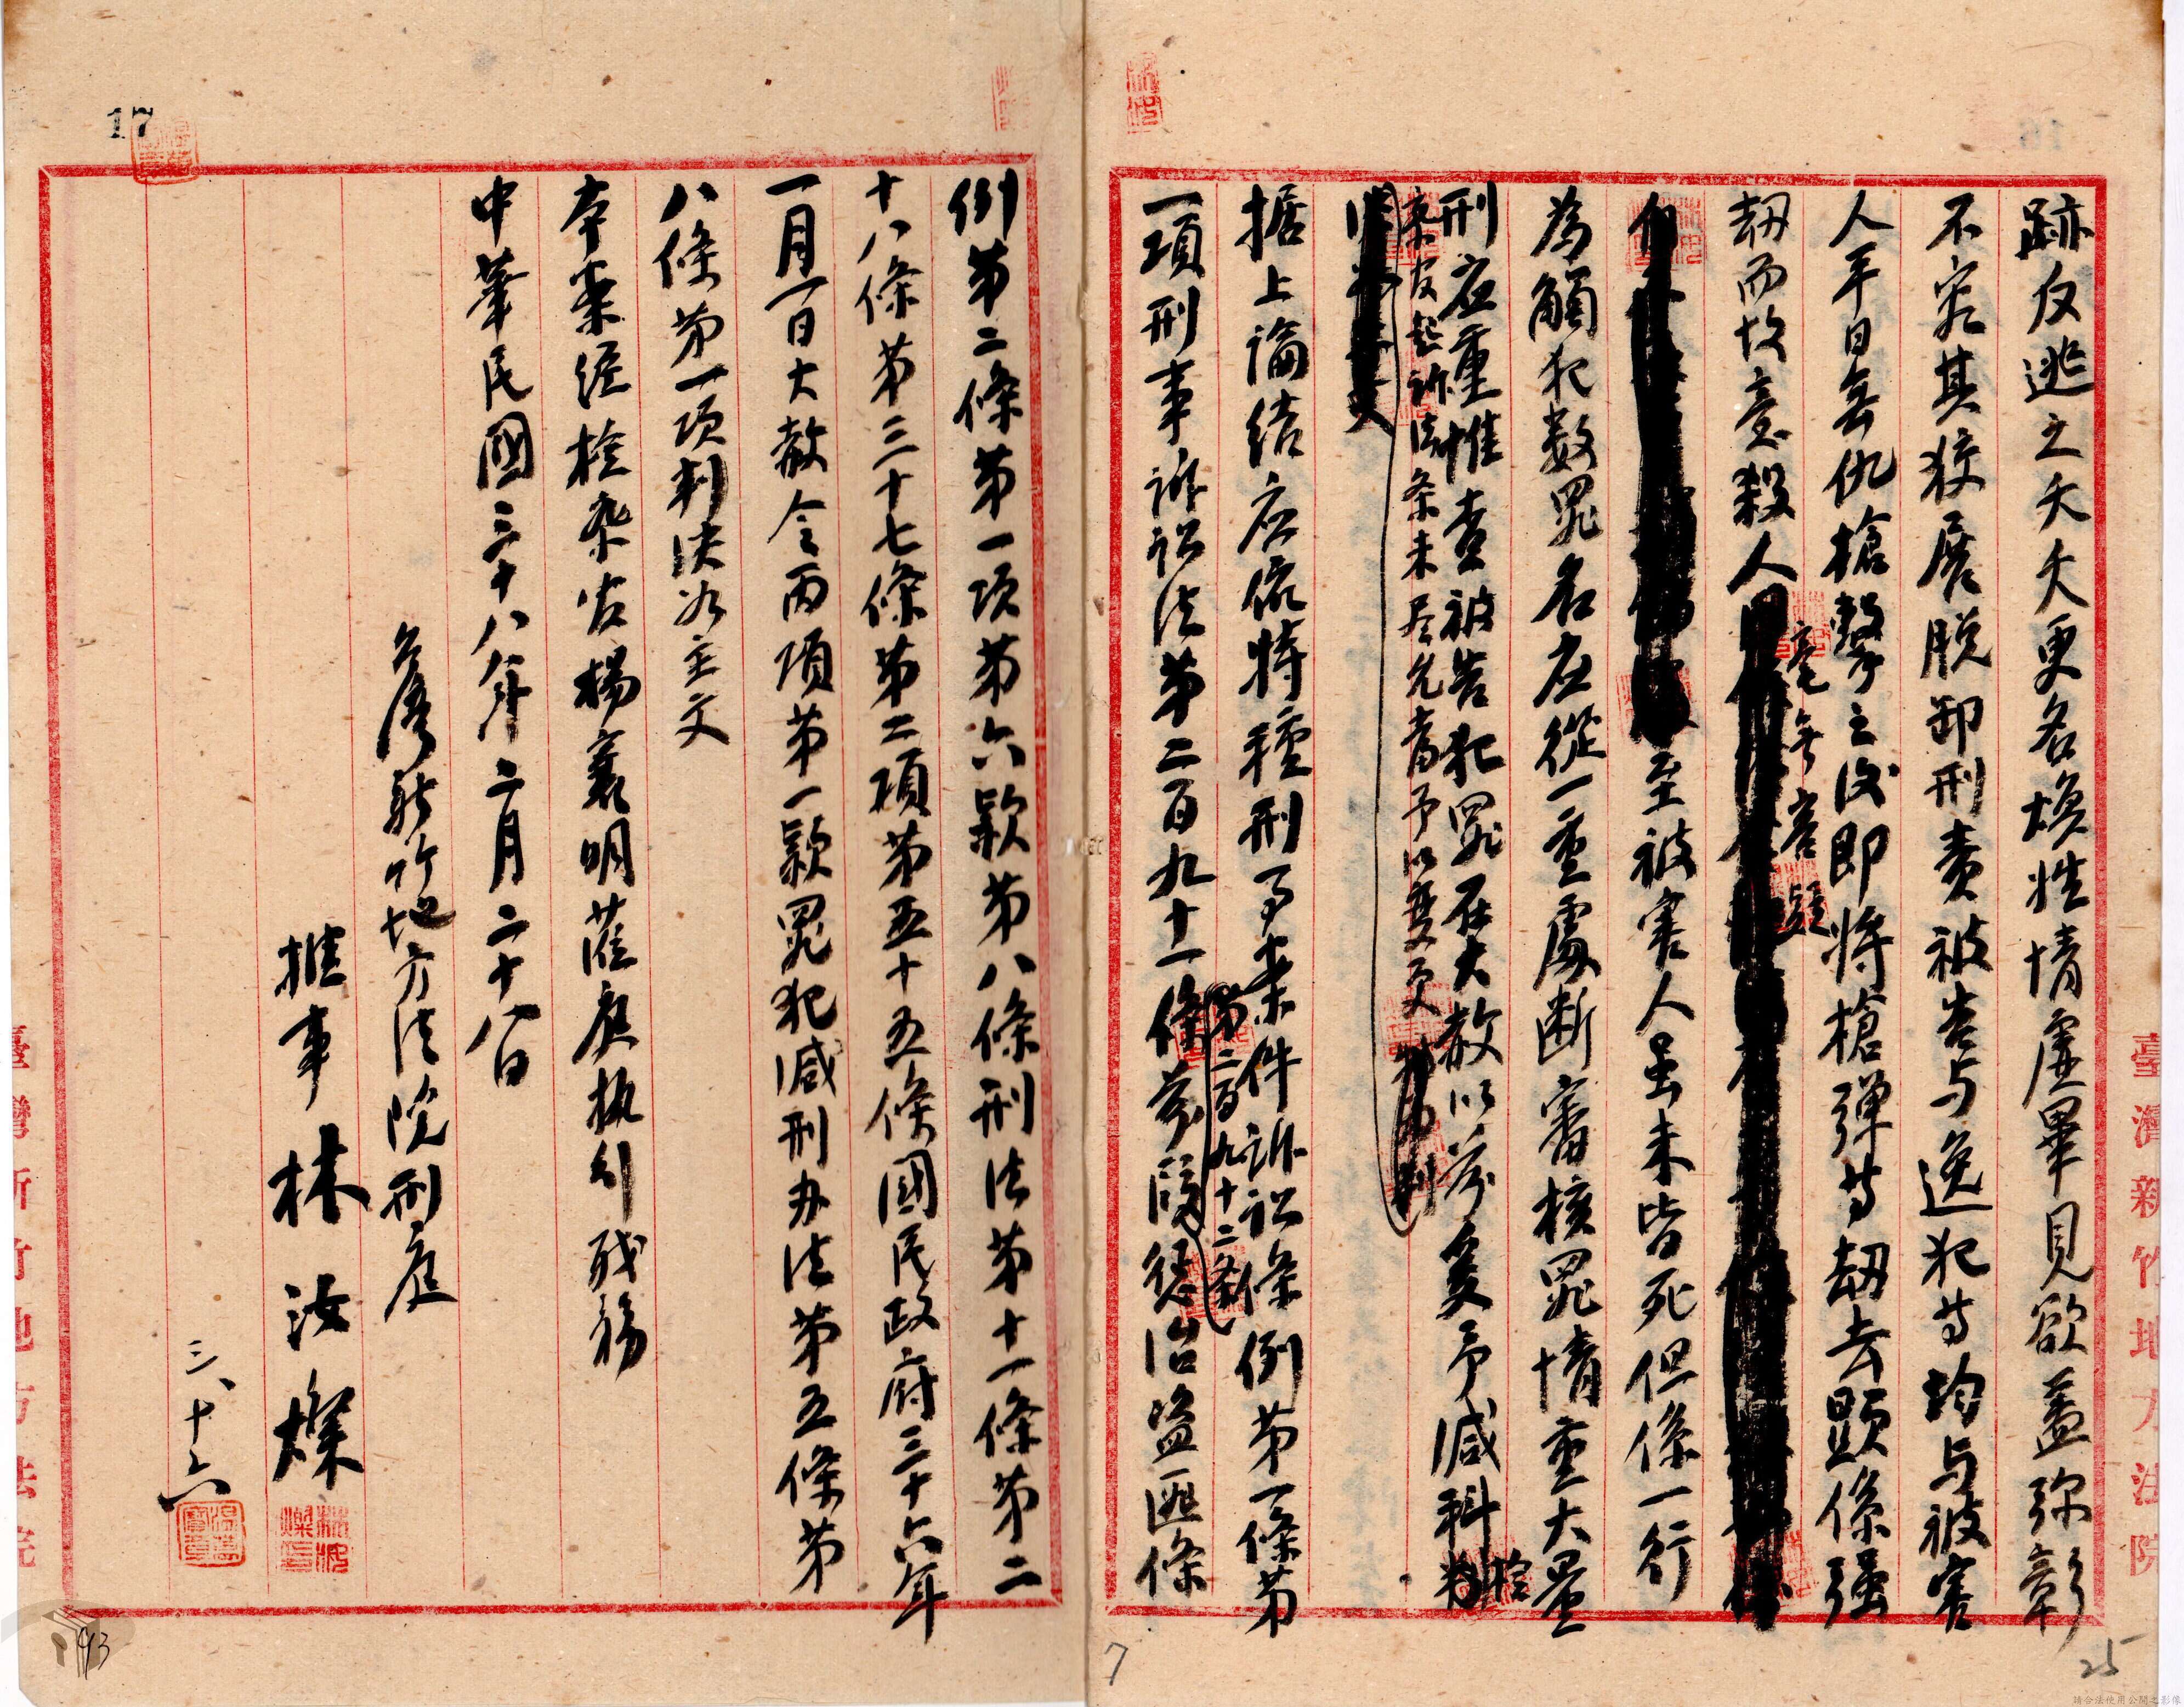 跡反逃之夭夭更名煥性情虛畢見欲蓋弥彰
不究其狡展脱卸刑責被告与逸犯等均与被害
人平日無仇槍擊之後即將槍彈等劫去顕係强
劫而故意殺人毫無容疑
至被害人虽未皆死但係一行
為觸犯数罪名应從一重處断審核罪情重大量
刑应重惟查被告犯罪在大赦以前爰予减科
檢
察官起訴法条未尽允當予以变更
据上論结应依特種刑事案件訴訟條例第一條第
一項刑事訴訟法第二百九十一條前段懲治盜匪條
第二百九十二條
例第二條第一項第六款第八條刑法第十一條第二
十八條第三十七條第二項第五十五條國民政府三十六年
一月一日大赦令丙項第一款罪犯减刑办法第五條第
八條第一項判决如主文
本案經檢察官楊襄明蒞庭执行職務
中華民國三十八年二月二十八日
台灣新竹地方法院刑庭
推事 林汝燦
三、十六
17
臺灣新竹地方法院
臺灣新竹地方法院
93
7
25
請合法使用公開之影像